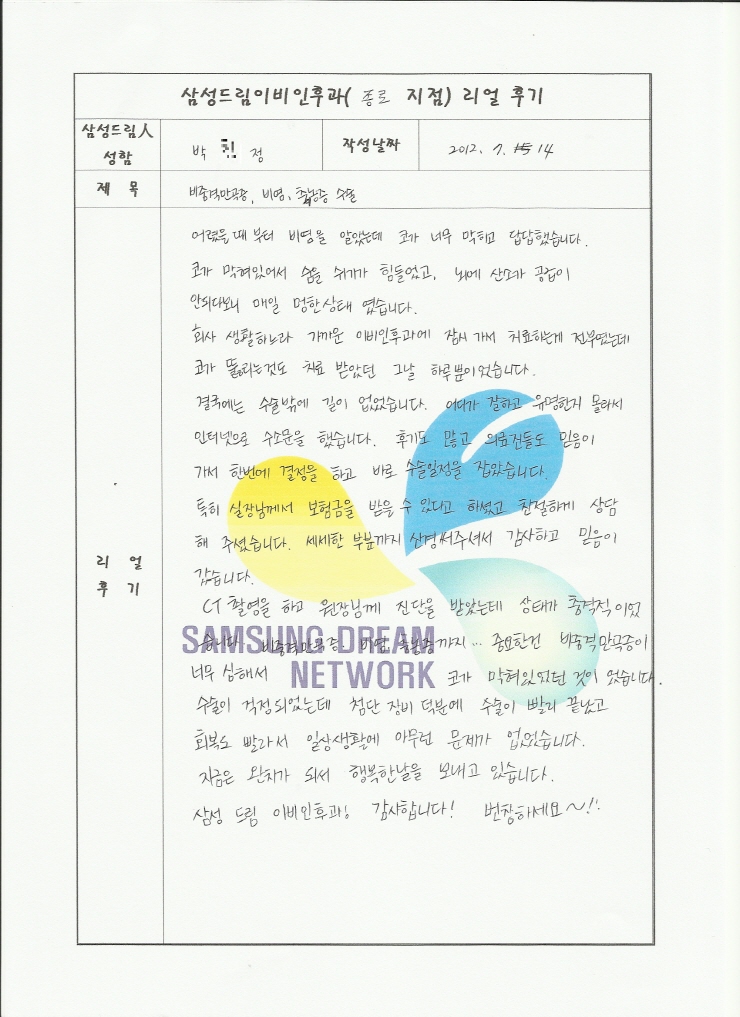 삼성드림이비인후과( 종로 지점) 리얼 후기
삼성드림人 성함
박 정
작성날짜
2012. 7. 15 14
제 목
비중격만곡증, 비염, 축농증 수술
리 얼 후 기
어렸을때 부터 비염을 앓았는데 코가 너무 막히고 답답했습니다.
코가 막혀있어서 숨을 쉬기가 힘들었고, 뇌에 산소가 공급이
안되다보니 매일 멍한상태 였습니다.
회사 생활하느라 가까운 이비인후과에 잠시 가서 치료하는게 전부였는데
코가 뚫리는것도 치료 받았던 그날 하루뿐이었습니다.
결국에는 수술밖에 길이 없었습니다. 어디가 잘하고 유명한지 몰라서
인터넷으로 수소문을 했습니다. 후기도 많고 의료진들도 믿음이
가서 한번에 결정을 하고 바로 수술일정을 잡았습니다.
특히 실장님께서 보험금을 받을 수 있다고 하셨고 친절하게 상담
해 주셨습니다. 세세한 부분까지 신경써주셔서 감사하고 믿음이
갔습니다.
CT 촬영을 하고 원장님께 진단을 받았는데 상태가 충격적 이었
습니다. 비중격만곡증, 비염, 축농증까지... 중요한건 비중격만곡증이
너무 심해서 코가 막혀있었던 것이 었습니다.
수술이 걱정되었는데 첨단 장비 덕분에 수술이 빨리 끝났고
회복도 빨라서 일상생활에 아무런 문제가 없었습니다.
지금은 완치가 되서 행복한날을 보내고 있습니다.
삼성 드림 이비인후과! 감사합니다! 번창하세요~!!
SAMSUNG DREAM
NETWORK